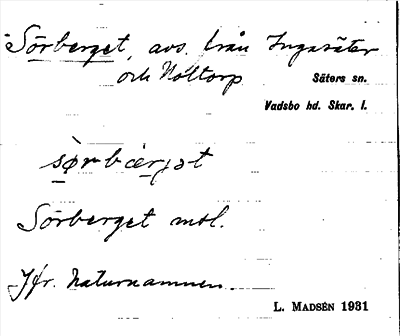 Sörberget, avs. från Ingasäter
och Holtorp
Säters sn.
Vadsbo hd. Skar. l.
sø̀rbærjət
Sörberget msl.
Jfr. Naturnamnen.
L. MADSÉN 1931